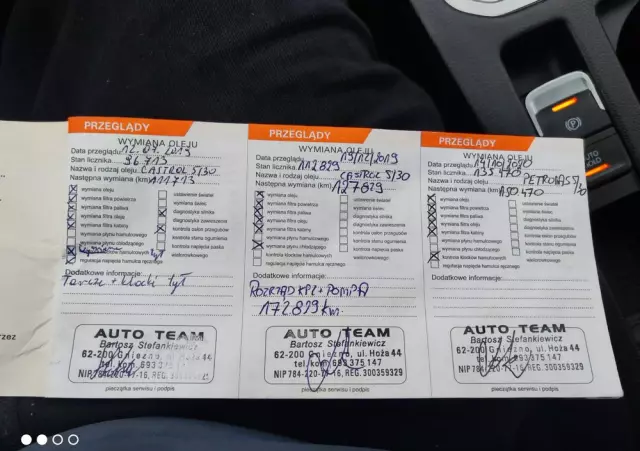 PRZEGLĄDY
WYMIANA OLEJU
Data przeglądu:
Stan licznika 96 713
Nazwa i rodzaj oleju: CASTROL 5/30
Następna wymiana (km) 111713
wymiana oleju
wymiana filtra powietrza
wymiana filtra paliwa
wymiana filtra oleju
wymiana filtra kabiny
wymiana płynu hamulcowego
wymiana płynu chłodzącego
regulacja napięcia hamulca ręcznego
ustawienie świateł
diagnostyka silnika
diagnostyka zawieszenia
kontrola osłon przegubów
kontrola stanu ogumienia
kontrola napięcia paska
wielorowkowego
Dodatkowe informacje:
Tarcze + klocki tył
AUTO TEAM
Bartosz Stefankiewicz
62-200 Gniezno, ul. Hoża 44
tel. kom. 693
pieczątka serwisu i podpis
PRZEGLĄDY
WYMIANA OLEJU
Data przeglądu 19/12/2019
Stan licznika 112829
Nazwa i rodzaj oleju: CASTROL 5/30
Następna wymiana (km) 127829
wymiana oleju
wymiana filtra powietrza
wymiana filtra paliwa
wymiana filtra oleju
wymiana filtra kabiny
wymiana płynu hamulcowego
wymiana płynu chłodzącego
kontrola klocków hamulcowych
regulacja napięcia hamulca ręcznego
ustawienie świateł
diagnostyka silnika
diagnostyka zawieszenia
kontrola osłon przegubów
kontrola stanu ogumienia
kontrola napięcia paska
wielorowkowego
Dodatkowe informacje:
ROZRZĄD KPL + POMPA
112.829 km.
AUTO TEAM
Bartosz Stefankiewicz
62-200 Gniezno, ul. Hoża 44
tel. kom. 693 375 147
NIP 784-220-71-16, REG. 300359329
pieczątka serwisu i podpis
PRZEGLĄDY
WYMIANA OLEJU
Data przeglądu: 14/10/2020
Stan licznika 135 470
Nazwa i rodzaj oleju: PETRONAS 5/
Następna wymiana (km) 150 470
wymiana oleju
wymiana filtra powietrza
wymiana filtra paliwa
wymiana filtra oleju
wymiana filtra kabiny
wymiana płynu hamulcowego
wymiana płynu chłodzącego
kontrola klocków hamulcowych
regulacja napięcia hamulca ręcznego
ustawienie świateł
diagnostyka silnika
diagnostyka zawieszenia
kontrola osłon przegubów
kontrola stanu ogumienia
kontrola napięcia paska
wielorowkowego
Dodatkowe informacje:
AUTO TEAM
Bartosz Stefankiewicz
62-200 Gniezno, ul. Hoża 44
tel. kom. 693 375 147
NIP 784-220-71-16, REG. 300359329
pieczątka serwisu i podpis
AUTO
HOLD
rzez